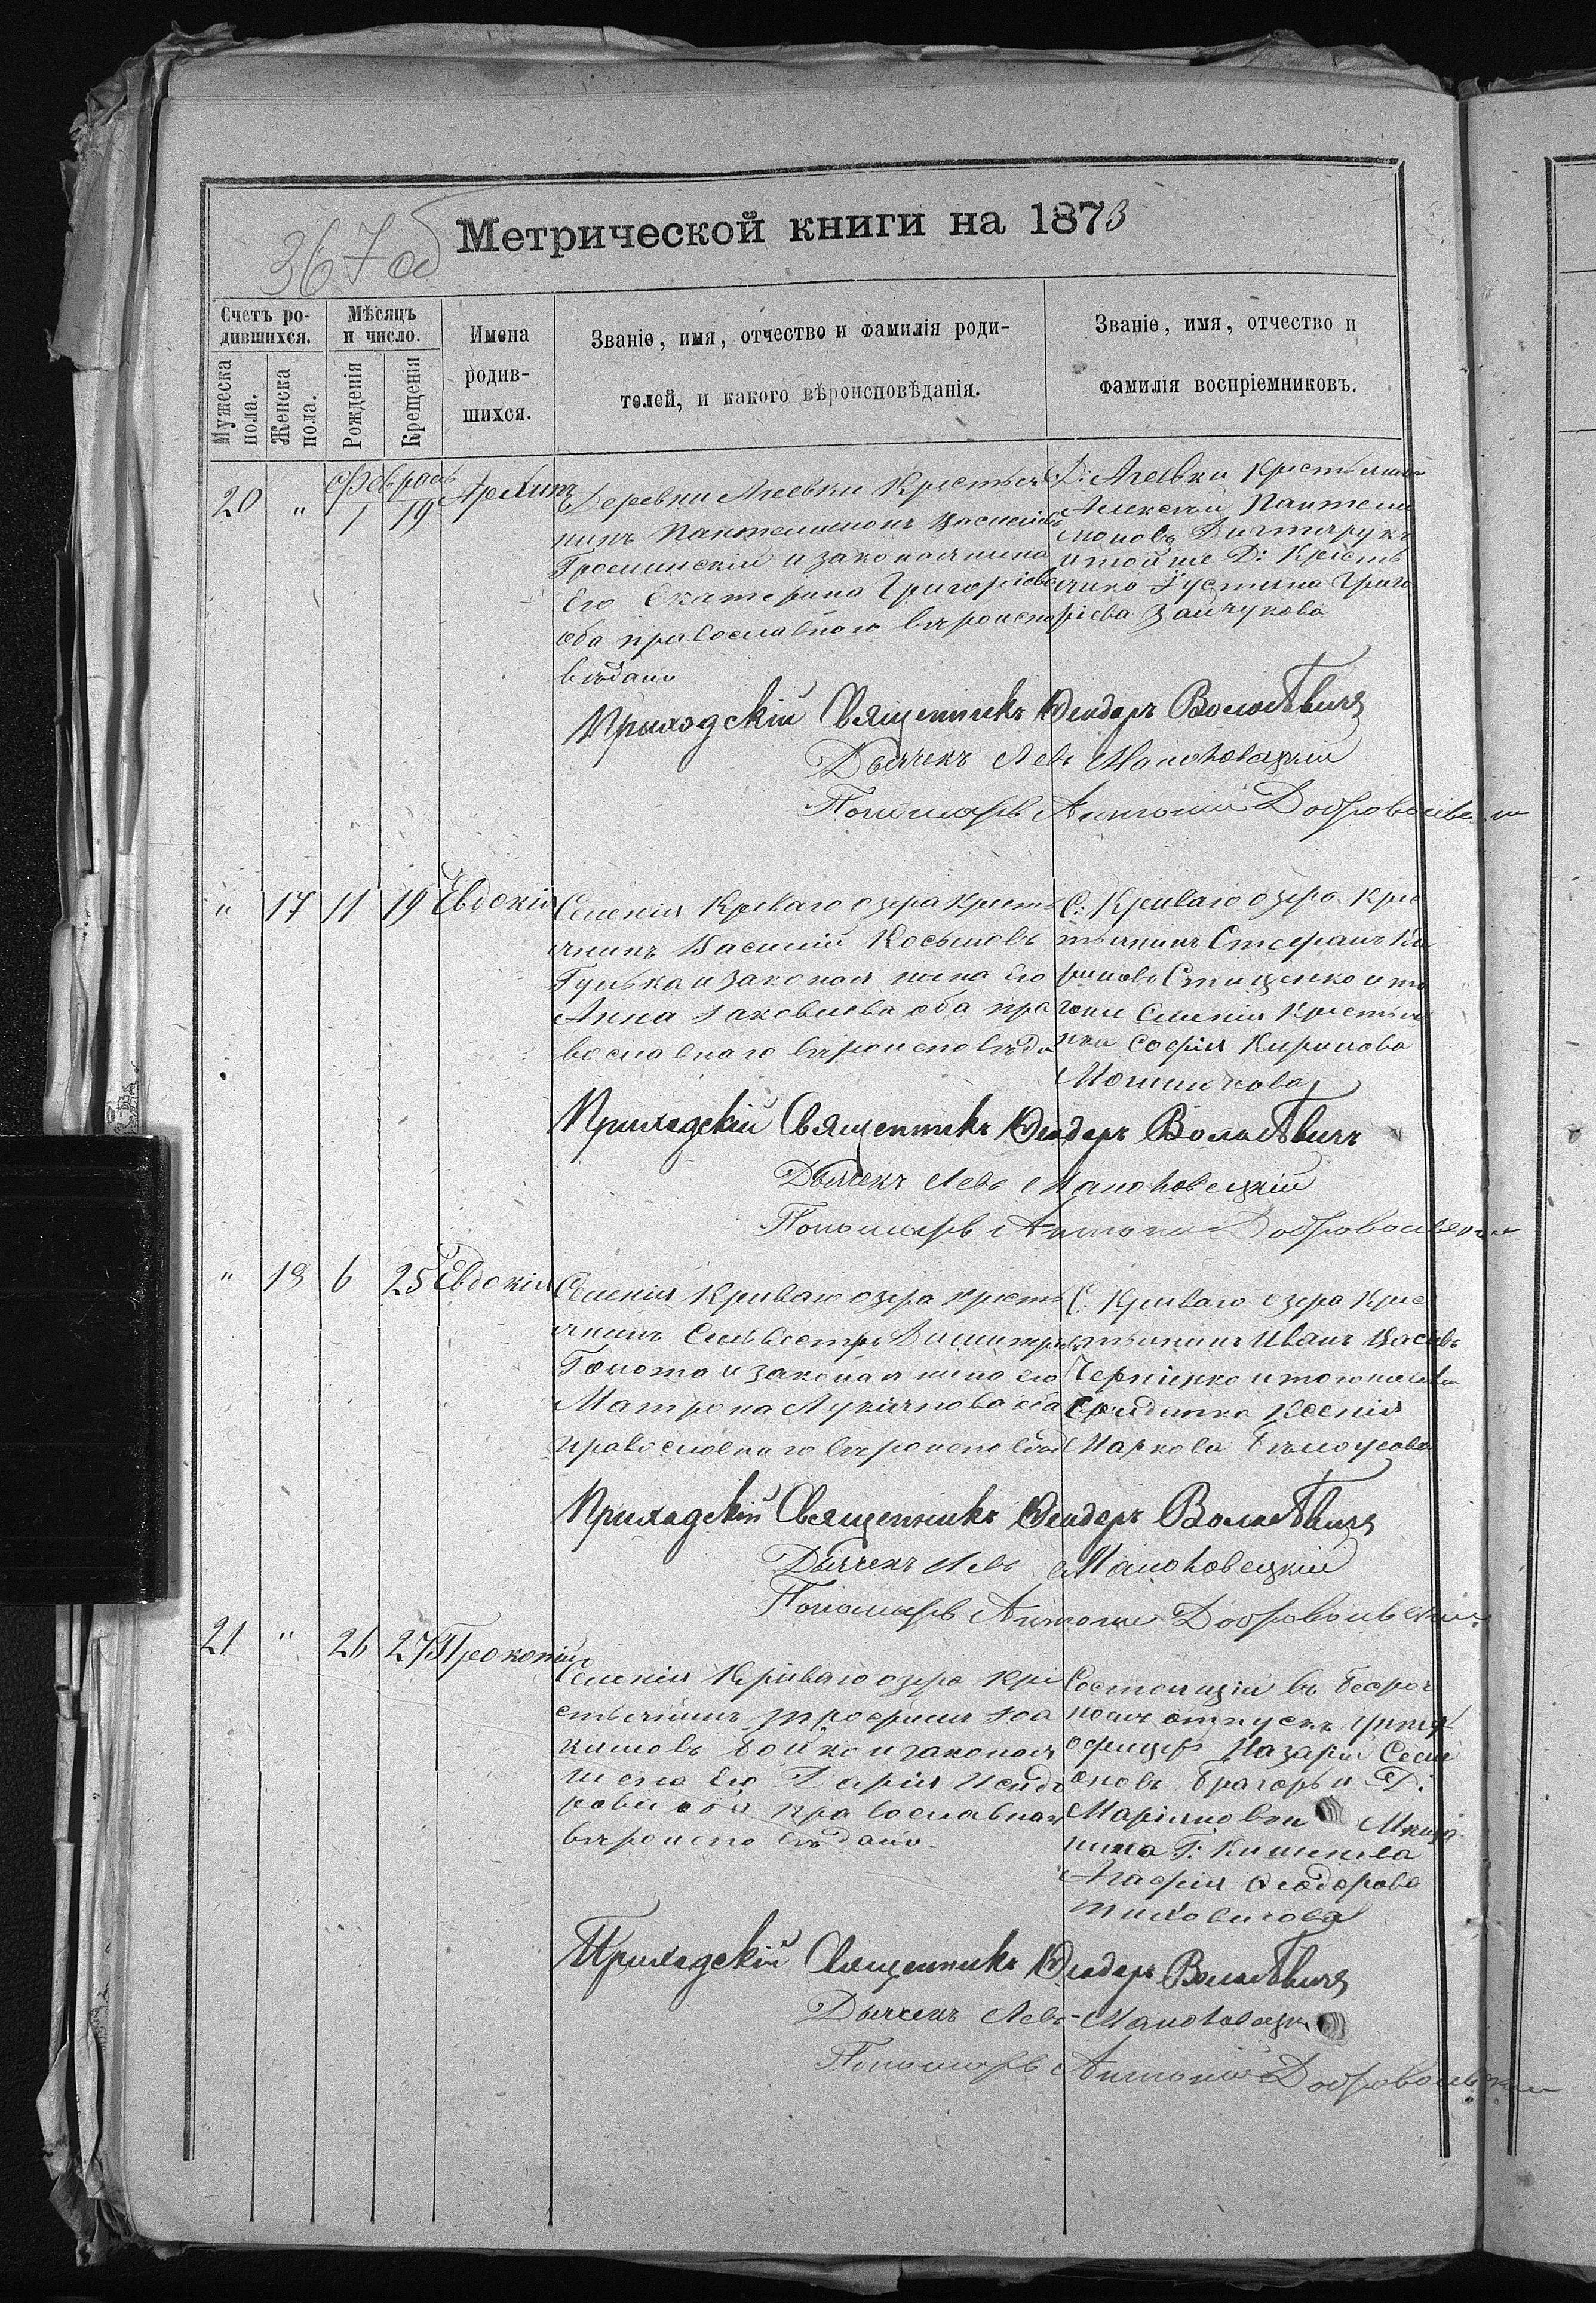 367об
Метрической книги на 1873
Счетъ ро-
дившихся.
Мужеска
пола.
Женска
пола.
Мѣсяцъ
и число.
Рожденія
Крещенія
Имена
родив-
шихся.
Званіе, имя, отчество и фамилія роди-
телей, и какого вѣроисповѣданія.
Званіе, имя, отчество и
фамилія воспріемниковъ.
20 " Февраль 1 19 Архипъ
Деревни Агеевки Крестья
нинъ Пантелеимонъ Василіевъ
и законая жена
Его Екатерина Григоріева
оба православного вѣроиспо
вѣданія
Д: Агеевки Крестьянинъ
Алексѣй Пантелеи
моновъ
и тойже Д: Крестья
нка Іустина Григо
ріева Зайчукова
Приходскій Священникъ Феодоръ
Дьячекъ Левъ Маньковецкій
Пономарь Антоній Добровольскій
" 17 11 19 Евдокія
Селенія Криваго озера Крест
янинъ Василій Косьмовъ
Гулька и законая жена Его
Анна Іаковлева оба пра
вославного вѣроисповѣда
С: Криваго озера Крес
тьянинъ Стефанъ Ки
риловъ Стищенко и то
гоже Селенія Крестья
нка Софія Кирилова
Приходскій Священникъ Феодоръ
Дьячекъ Левъ Маньковецкій
Пономарь Антоній Добровольскій
" 18 6 25 Евдокія
Селенія Криваго озера Крест
янинъ Сильвестръ Димитріевъ
Голота и законая жена его
Матрона Лукіянова оба
православного вѣроисповѣд
С. Криваго озера Крес
тьянинъ Иванъ Василь
Черненко и тогоже села
Солдатка Ксенія
Маркова Бѣлоусова
Приходскій Священникъ Феодоръ
Дьячекъ Левъ Маньковецкій
Пономарь Антоній Добровольскій
21 " 26 27 Прокопій
Селенія Криваго озера Кре
стьянинъ Трофимъ Іоа
кимовъ Бойко и законая
жена Его Дарія Исидо
рова оба православнаго
вѣроисповѣданія.
Состоящій въ безсроч
номъ отпускѣ унтеръ
офицеръ Назарій Семе
оновъ и Д:
Маріяновки Мѣща
нина Г: Кишенева
Агафія Феодорова
Приходскій Священникъ Феодоръ
Дьячекъ Левъ Маньковецк
Пономарь Антоній Добровольскій